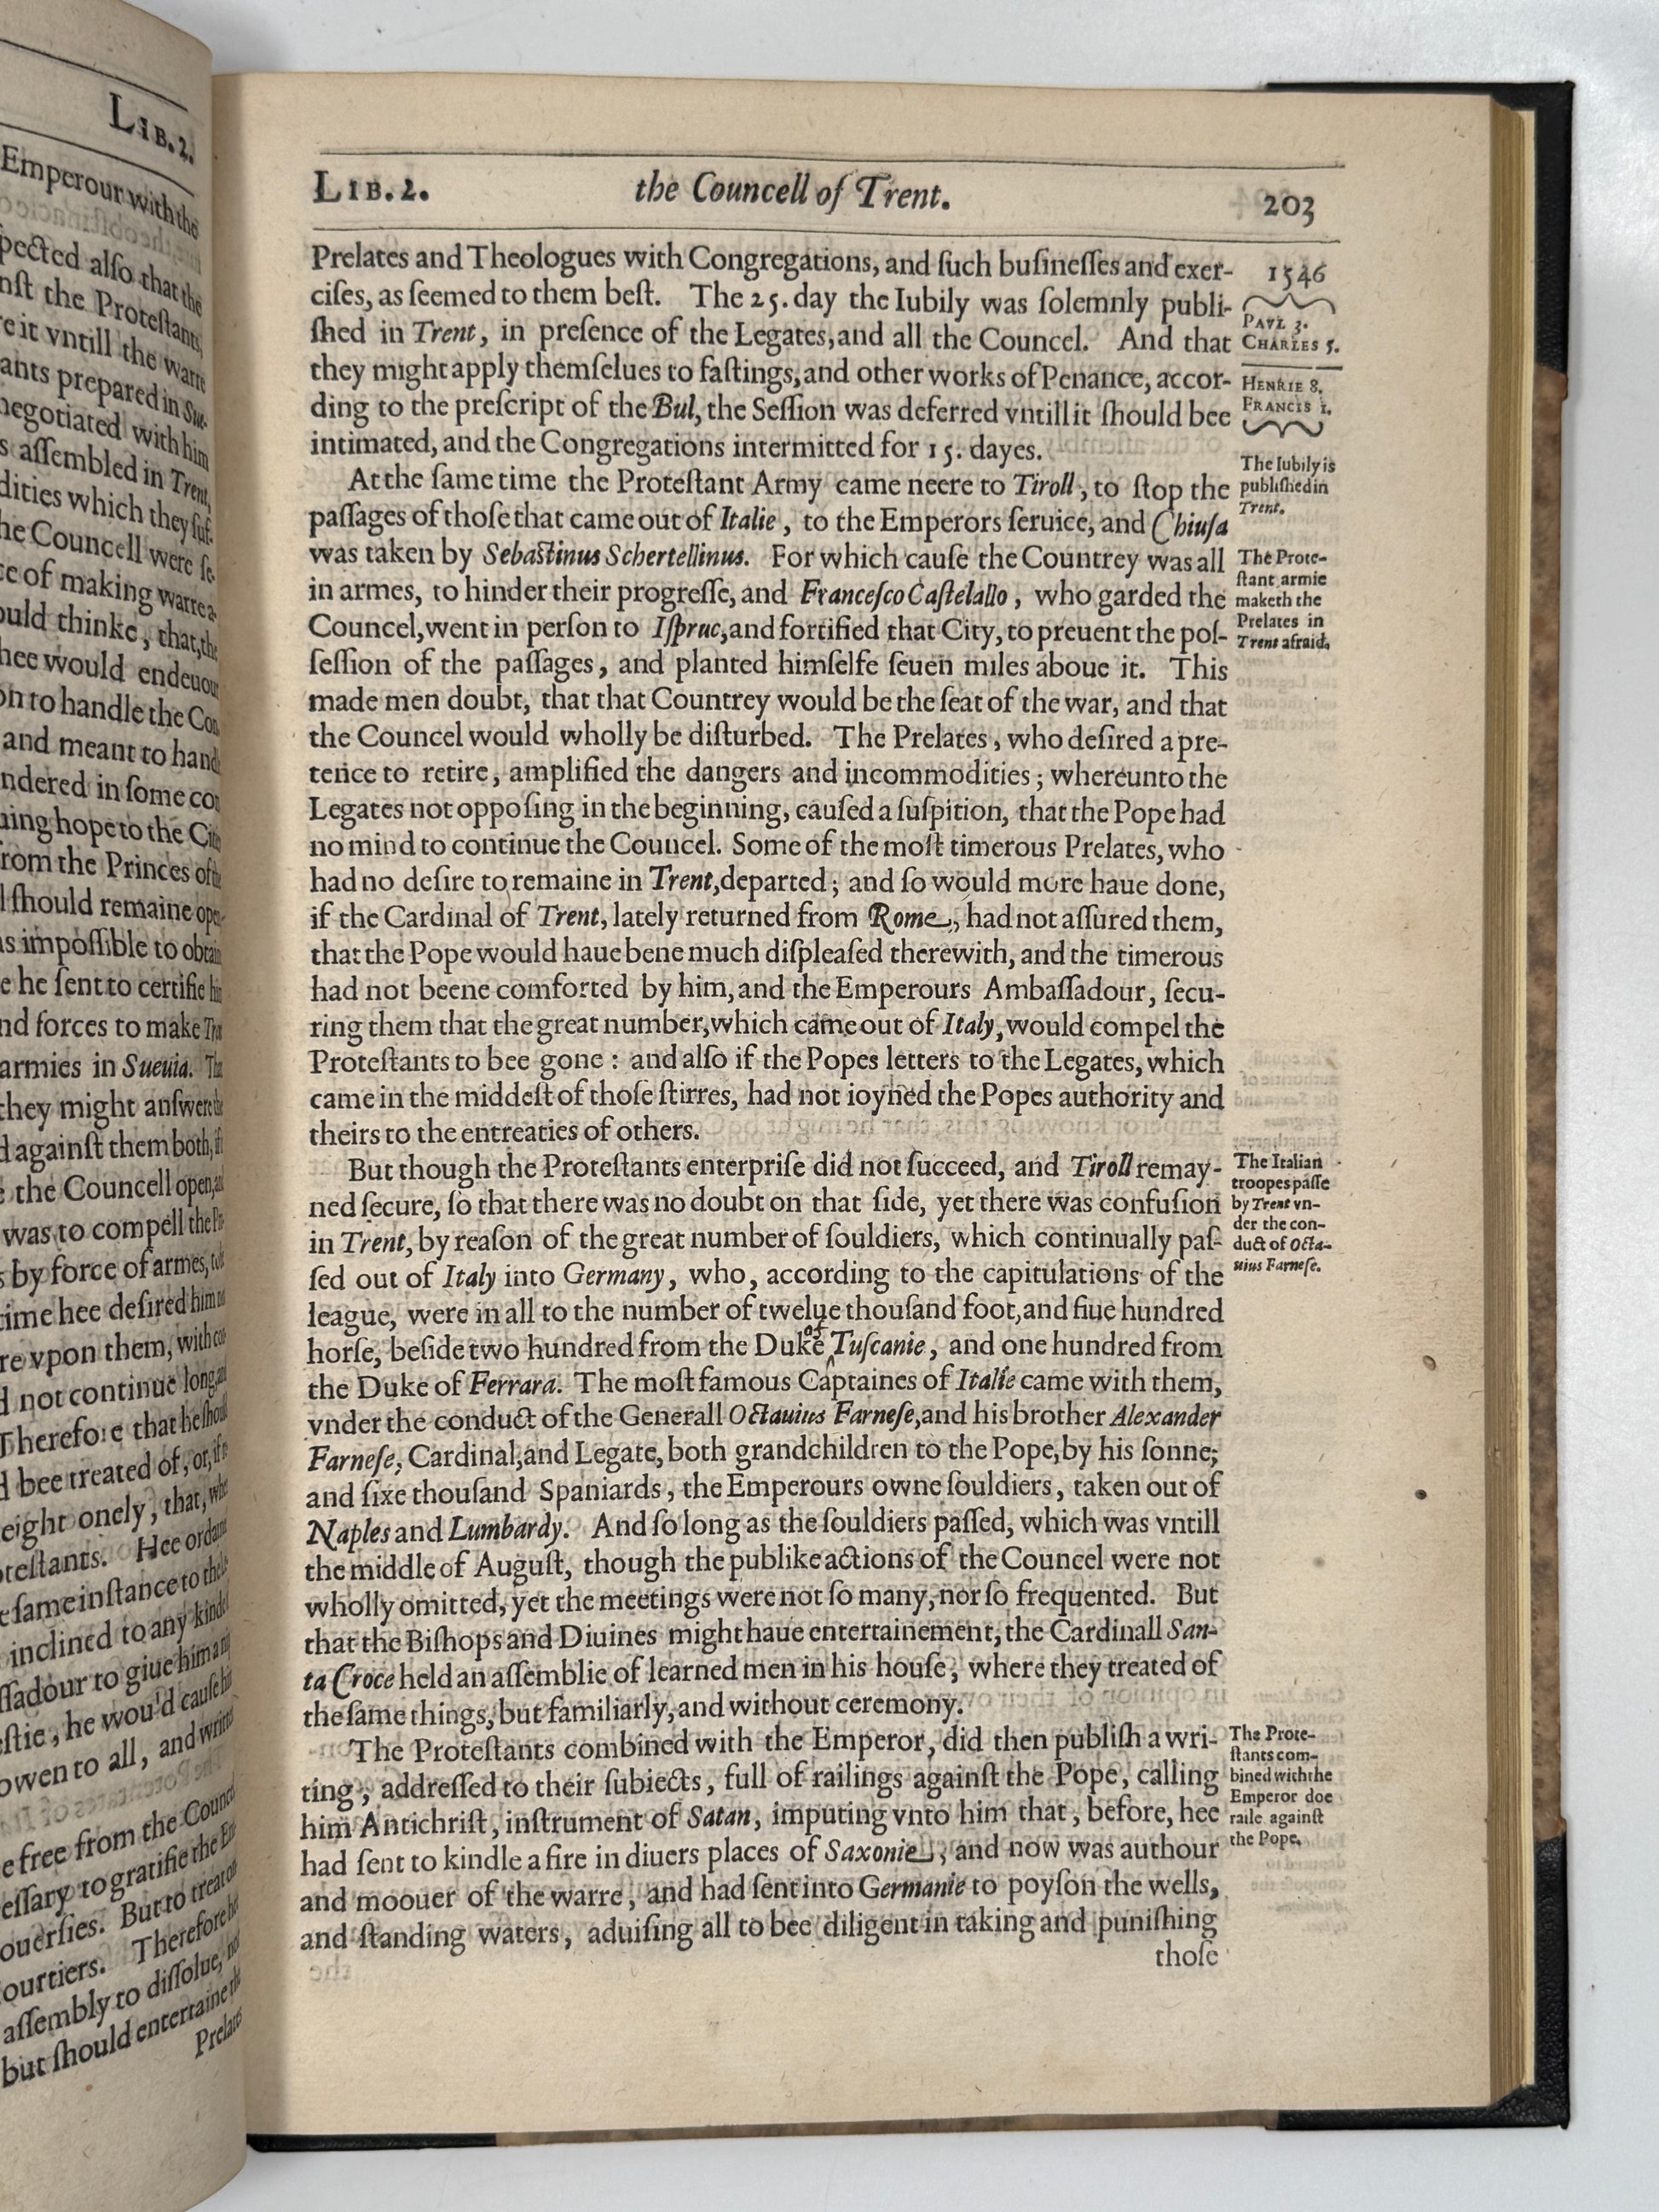 LIB. 2.
Emperour with the
pected alſo that the
nſt the Proteſtants,
re it vntill the warre
ants prepared in Sue-
negotiated with him
s aſſembled in Trent,
dities which they ſuf-
he Councell were ſe-
ce of making warre a-
ould thinke, that, the
hee would endeuour
on to handle the Con-
and meant to
ndered in ſome
uing hope to the
rom the Princes of the
l ſhould remaine open-
as impoſſible to obtain
e he ſent to certifie
nd forces to make
armies in Sueuia.
they might anſwere
d againſt them both,
the Councell open,
was to compell the
s by force of armes,
time hee deſired him
re vpon them, with
d not continue long,
Therefore that he ſhould
d bee treated of, or,
eight onely, that,
teſtants. Hee
ſame inſtance to the
inclined to any kinde
ſſadour to giue him
ſtie, he wou'd cauſe
owen to all, and
e free from the
eſſary to gratifie the
ouerſies. But to treat
ourtiers. Therefore
aſſembly to diſſolue,
but ſhould entertaine
Prelates
LIB. 2. the Councell of Trent. 203
Prelates and Theologues with Congregations, and ſuch buſineſſes and exer-
ciſes, as ſeemed to them beſt. The 25. day the Iubily was ſolemnly publi-
ſhed in Trent, in preſence of the Legates, and all the Councel. And that
they might apply themſelues to faſtings, and other works of Penance, accor-
ding to the preſcript of the Bul, the Seſſion was deferred vntill it ſhould bee
intimated, and the Congregations intermitted for 15. dayes.
At the ſame time the Proteſtant Army came neere to Tiroll, to ſtop the
paſſages of thoſe that came out of Italie, to the Emperors ſeruice, and Chiuſa
was taken by Sebaſtinus Schertellinus. For which cauſe the Countrey was all
in armes, to hinder their progreſſe, and Franceſco Caſtelallo, who garded the
Councel, went in perſon to Iſpruc, and fortified that City, to preuent the poſ-
ſeſſion of the paſſages, and planted himſelfe ſeuen miles aboue it. This
made men doubt, that that Countrey would be the ſeat of the war, and that
the Councel would wholly be diſturbed. The Prelates, who deſired a pre-
tence to retire, amplified the dangers and incommodities; whereunto the
Legates not oppoſing in the beginning, cauſed a ſuſpition, that the Pope had
no mind to continue the Councel. Some of the moſt timerous Prelates, who
had no deſire to remaine in Trent, departed; and ſo would more haue done,
if the Cardinal of Trent, lately returned from Rome, had not aſſured them,
that the Pope would haue bene much diſpleaſed therewith, and the timerous
had not beene comforted by him, and the Emperours Ambaſſadour, ſecu-
ring them that the great number, which came out of Italy, would compel the
Proteſtants to bee gone: and alſo if the Popes letters to the Legates, which
came in the middeſt of thoſe ſtirres, had not ioyned the Popes authority and
theirs to the entreaties of others.
But though the Proteſtants enterpriſe did not ſucceed, and Tiroll remay-
ned ſecure, ſo that there was no doubt on that ſide, yet there was confuſion
in Trent, by reaſon of the great number of ſouldiers, which continually paſ-
ſed out of Italy into Germany, who, according to the capitulations of the
league, were in all to the number of twelue thouſand foot, and fiue hundred
horſe, beſide two hundred from the Duke of Tuſcanie, and one hundred from
the Duke of Ferrara. The moſt famous Captaines of Italie came with them,
vnder the conduct of the Generall Octauius Farneſe, and his brother Alexander
Farneſe, Cardinal, and Legate, both grandchildren to the Pope, by his ſonne;
and ſixe thouſand Spaniards, the Emperours owne ſouldiers, taken out of
Naples and Lumbardy. And ſo long as the ſouldiers paſſed, which was vntill
the middle of Auguſt, though the publike actions of the Councel were not
wholly omitted, yet the meetings were not ſo many, nor ſo frequented. But
that the Biſhops and Diuines might haue entertainement, the Cardinall San-
ta Croce held an aſſemblie of learned men in his houſe, where they treated of
the ſame things, but familiarly, and without ceremony.
The Proteſtants combined with the Emperor, did then publiſh a wri-
ting, addreſſed to their ſubiects, full of railings againſt the Pope, calling
him Antichriſt, inſtrument of Satan, imputing vnto him that, before, hee
had ſent to kindle a fire in diuers places of Saxonie, and now was authour
and moouer of the warre, and had ſent into Germanie to poyſon the wells,
and ſtanding waters, aduiſing all to bee diligent in taking and puniſhing
thoſe
1546
PAVL 3.
CHARLES 5.
HENRIE 8.
FRANCIS 1.
The Iubily is
publiſhed in
Trent.
The Prote-
ſtant armie
maketh the
Prelates in
Trent afraid.
The Italian
troopes paſſe
by Trent vn-
der the con-
duct of Octa-
uius Farneſe.
The Prote-
ſtants com-
bined with the
Emperor doe
raile againſt
the Pope.